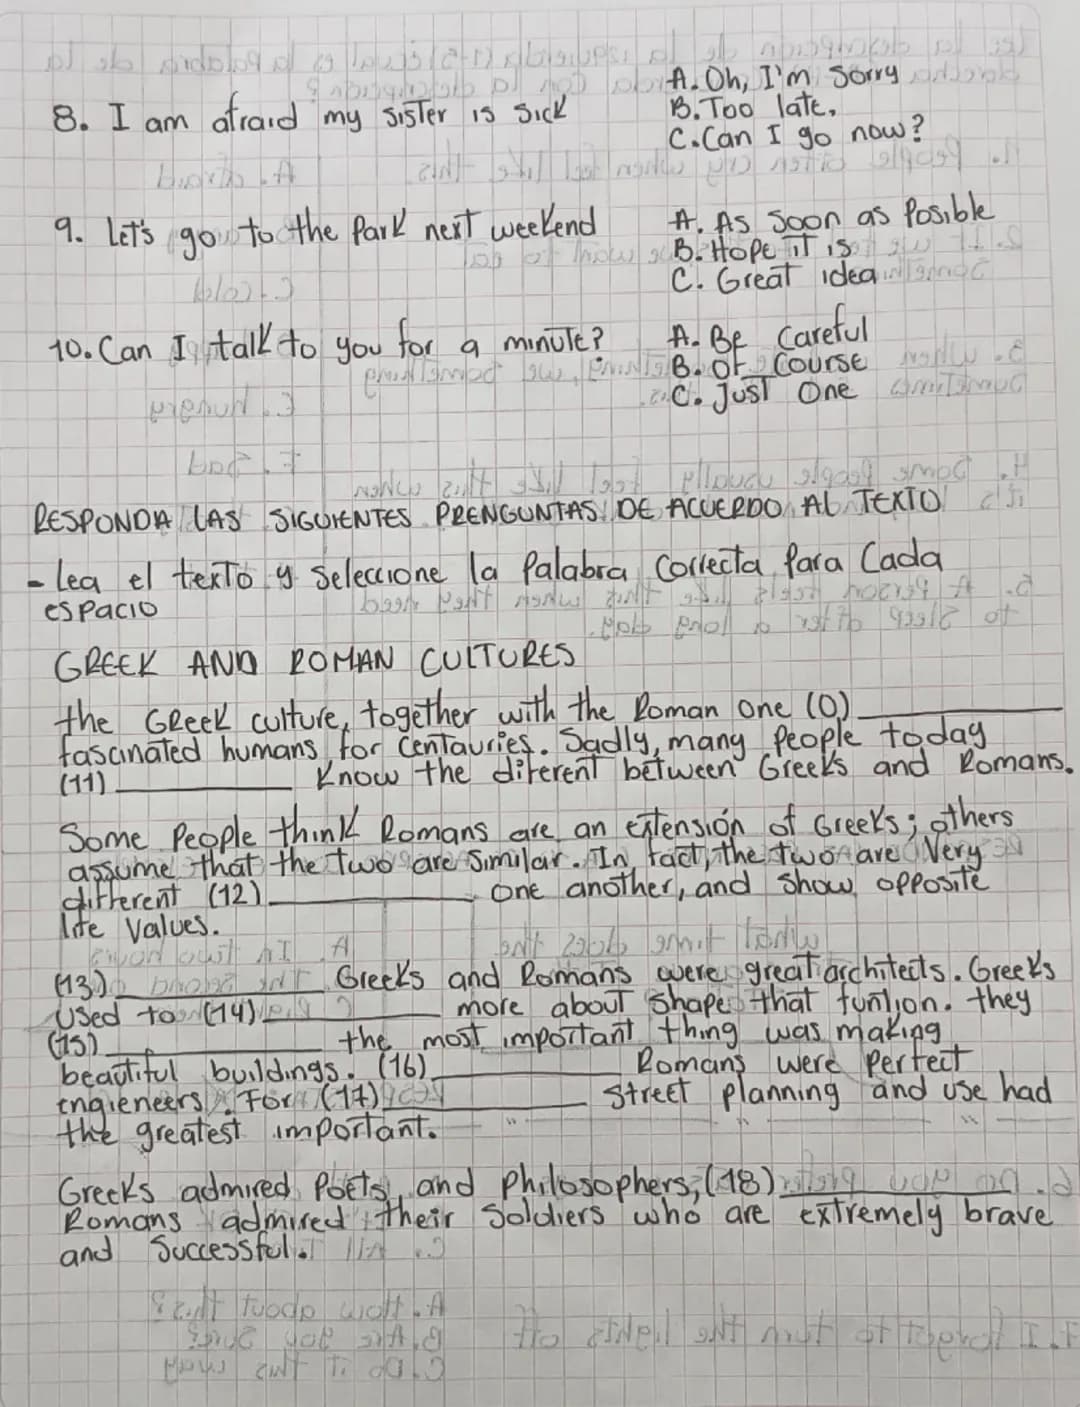 8. I am afraid my sister is sick
A. Oh, I'm Sorry
B. Too late.
C. Can I go now?
9. Let's go to the Park next weekend
A. As Soon as Posible
B. Hope it is
C. Great idea
10. Can I talk to you for a minute?
A. Be Careful
B. Of Course
C. Just One
RESPONDA LAS SIGUIENTES PRENGUNTAS DE ACUERDO AL TEXTO
- Lea el texto y Seleccione la Palabra Correcta Para Cada
espacio
GREEK AND ROMAN CULTURES
the Greek culture, together with the Roman one (0) ___
fascinated humans for Centauries. Sadly, many People today
(11) ___ Know the diferent between Greeks and Romans.
Some People think Romans are an extensión of Greeks; others
assume that the two are similar. In fact, the two are Very
different (12) ___ one another, and show opposite
life Values.
(13) ___ Greeks and Romans were great architects. Greeks
Used to (14) ___ more about shape that funtion. they
(15) ___ the most important thing was making
beautiful buildings. (16) ___ Romans were Perfect
engieneers. For (17) ___ Street planning and use had
the greatest important.
Greeks admired Poets, and Philosophers, (18) ___
Romans admired their Soldiers who are extremely brave
and Successful.